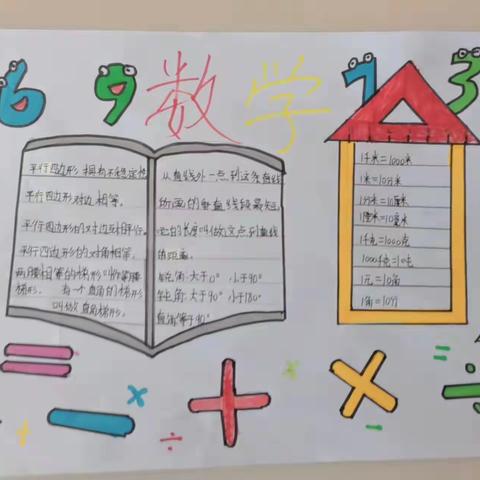 6 9 数学 7 3
平行四边形 相等不稳定性
平行四边形对边相等。
平行四边形的对边互相平行。
平行四边形的对角相等。
两腰相等的梯形叫做等腰
梯形。 有一个直角的梯形
叫做直角梯形。
从直线外一点到这条直线
所画的垂直线段最短
的长度叫做这点到直线
的距离。
锐角:大于0° 小于90°
钝角:大于90° 小于180°
直角等于90°
1千米=1000米
1米=10分米
1分米=10厘米
1厘米=10毫米
1千克=1000克
1000千克=1吨
1元=10角
1角=10分
= - × ÷ + × = ÷